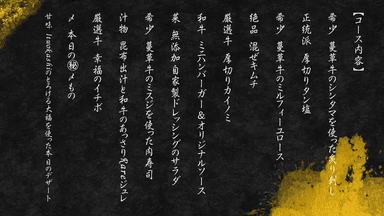 【コース内容】
希少 蔓草牛のシンタマを使った炙り刺し
正統派 厚切りタン塩
希少 蔓草牛のミルフィーユロース
絶品 混ぜキムチ
厳選牛 厚切りカイノミ
和牛 ミニハンバーガー＆オリジナルソース
菜 無添加自家製ドレッシングのサラダ
希少 蔓草牛のミスジを使った肉寿司
汁物 昆布出汁と和牛のあっさりRareジュレ
厳選牛 幸福のイチボ
〆 本日の㊙〆もの
甘味 のとろける大福を使った本日のデザート